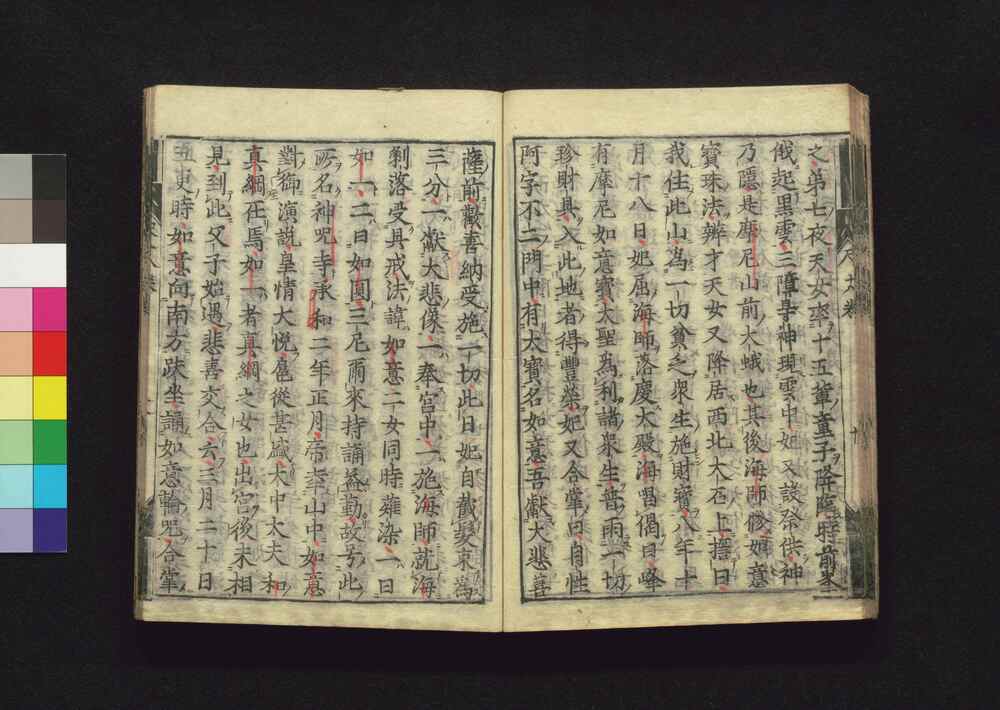 之弟七夜天女率十五輩童子降臨時前
俄起黑雲三障惡神現雲中妃又設祭供神
乃隱是摩尼山前大蛾也其後海師修如意
寶珠法辨才天女又降居西北大石上擇曰
我住此山為一切貧乏衆生施財寶八年十
月十八日妃屈海師落慶大殿海唱偈曰峰
有摩尼如意寶大聖為利諸衆生普雨一切
珍財具入此地者得豐榮妃又合掌曰自性
阿字不二門中有大寶名如意吾獻大悲菩
薩前歡喜納受施一切此日妃自截髮束為
三分一獻大悲像一奉宮中一施海師就海
剃落受具戒法諱如意二女同時薙染一曰
如一二曰如圓三尼爾來持誦益勤故号此
所名神呪寺承和二年正月帝幸山中如意
對御演說皇情大悅扈從甚盛大中大夫和
真綱在焉如一者真綱之女也出宮後未相
見到此父子始遇悲喜交合六三月二十日
五更時如意向南方趺坐誦如意輪咒合掌